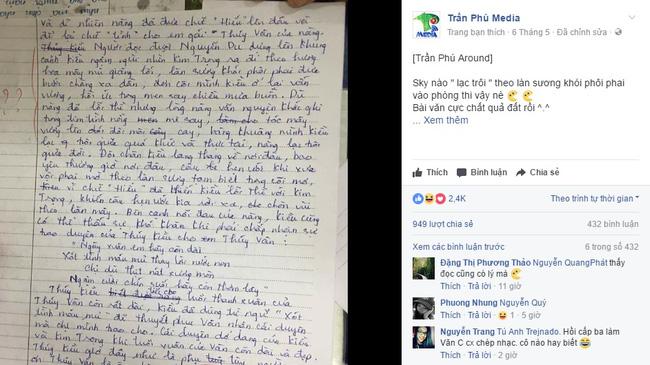 và dĩ nhiên nàng đã đưa chữ "Hiếu" lên đầu và
để lại chữ "tình" cho em gái "Thúy Vân của nàng.
Thúy Kiều Người đọc được Nguyễn Du dựng lên khung
cảnh Kiều ngậm ngùi nhìn Kim Trọng ra đi theo hương
hoa mây mù giăng lối, làn sương khói phôi phai đưa
bước chàng xa dần, đơn côi mình Kiều ở lại vấn
vương, hồi ức trong men say chiều mưa buồn. Dù
nàng đã lỡ thì nhưng lòng nàng vẫn nguyện khắc ghi
trong tim tình nồng mê say, tóc mây
vương lên đôi môi cay, bâng khuâng mình Kiều
lạc giữa quá khứ và thực tại, nàng lạc trôi
giữa đời. Đôi chân Kiều lang thang về nơi đâu, bao
yêu thương giờ nơi đâu, câu thơ hẹn ước khi xưa
vội phai mờ theo làn sương tam biệt trong cõi mơ,
vì chữ "Hiếu" đã khiến Kiều lỗi thề với Kim
Trọng, khiến câu hẹn ước kia rời xa, che chôn vùi
theo làn mây. Bên cạnh nỗi đau của nàng, Kiều cũng
có thể thấu sự khó khăn khi phải chấp nhận sự
trao duyên của Thúy Kiều cho Thúy Vân :
"Ngày xuân em hãy còn dài
Xót tình máu mủ thay lời nước non
Chị dù thịt nát xương mòn
Ngậm cười chín suối hãy còn thơm lây"
Thúy Kiều tuổi thanh xuân của
Thúy Vân còn rất dài, Kiều đã dùng từ ngữ "xót
tình máu mủ" để thuyết phục Vân nhận cái duyên
mà chị mình trao cho. Cái duyên dở dang của Kiều
và Kim Trọng khi tuổi xuân của Vân còn dài và đẹp.
Thúy Kiều giờ đây như là phụ
MEDIA
Trần Phú Media
Trang bạn thích · 6 Tháng 5 · Đã chỉnh sửa ·
[Trần Phú Around]
Sky nào " lạc trôi " theo làn sương khói phôi phai
vào phòng thi vậy nè
Bài văn cực chất quả đất rồi ^.^
... Xem thêm
Thích Bình luận Chia sẻ
2,4K Theo trình tự thời gian
949 lượt chia sẻ 432 bình luận
Xem các bình luận trước 6 trong số 432
Đặng Thị Phương Thảo Nguyễn QuangPhát thấy
đọc cũng có lý mà
Thích · Trả lời · 11 giờ
Phuong Nhung Nguyễn Quý
Thích · Trả lời · 1 · 3 giờ
Nguyễn Trang Tú Anh Trejnado. Hồi cấp ba làm
Văn C cx chép nhạc. cô nào hay biết
Thích · Trả lời · 2 giờ